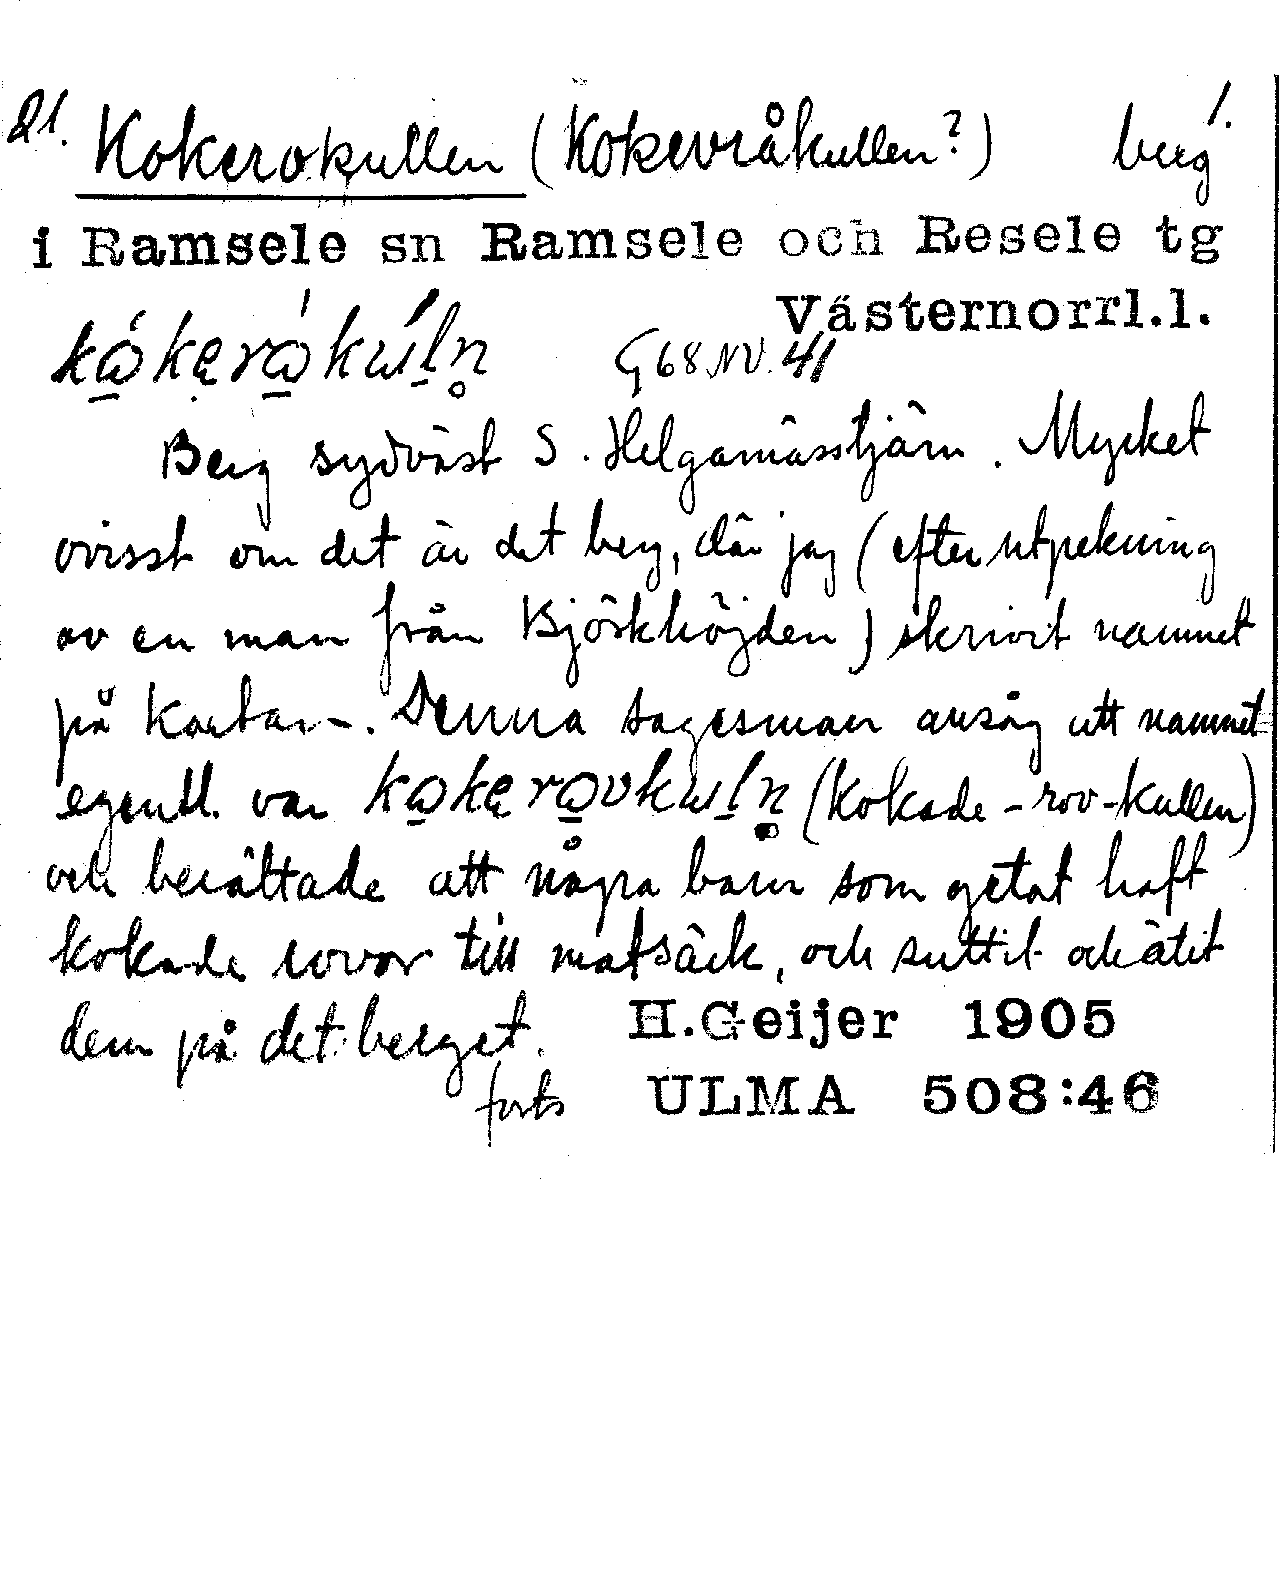 21. Kokerokullen (Kokevråkullen?) berg 1.
i Ramsele sn Ramsele och Resele tg
Västernorrl.l.
G 68 NV. 41
Berg sydväst S. Helgamässtjärn. Mycket
ovisst om det är det berg, där jag (efter utpekning
av en man från Björkhöjden) skrivit namnet
på kartan. Denna sagesman ansåg att namnet
egentl. var (kokade-rov-kullen)
och berättade att några barn som getat haft
kokade rovor till matsäck, och suttit och ätit
dem på det berget. H.Geijer 1905
forts ULMA 508:46